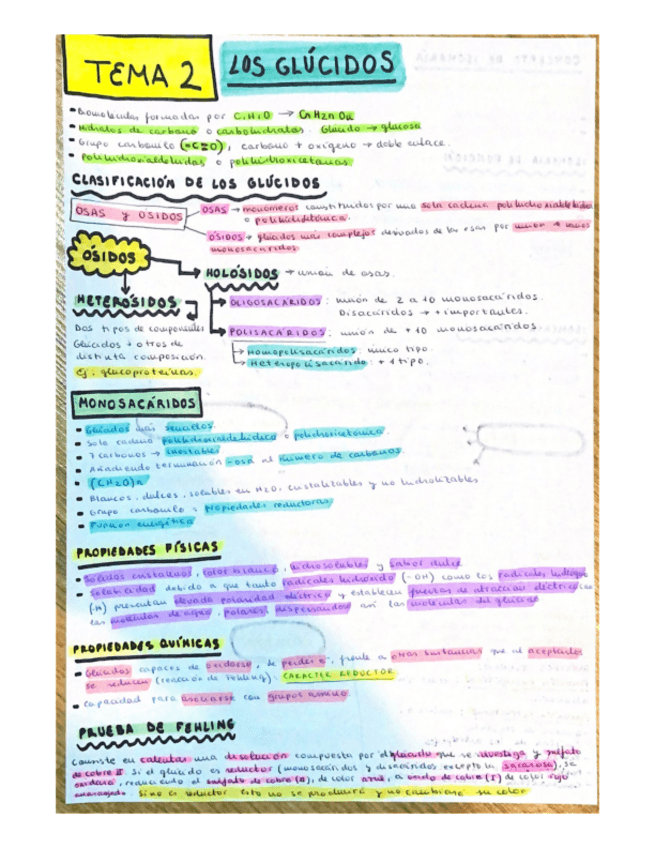 TEMA 2
LOS GLÚCIDOS
- Biomoléculas formadas por C, H, O → CnH2nOn
- Hidratos de carbono o carbohidratos. Glúcido → glucosa
- Grupo carbonilo (=C=O), carbono + oxígeno → doble enlace.
- Polihidroxialdehídas o polihidroxicetonas
CLASIFICACIÓN DE LOS GLÚCIDOS
OSAS y ÓSIDOS
OSAS → monómeros constituidos por una sola cadena polihidroxialdehídica
o polihidroxicetónica.
ÓSIDOS → glúcidos más complejos derivados de las osas por unión de varios
monosacáridos
ÓSIDOS
HOLÓSIDOS → unión de osas.
HETERÓSIDOS
Dos tipos de componentes
Glúcidos + otros de
distinta composición.
Ej: glucoproteínas.
OLIGOSACÁRIDOS: unión de 2 a 10 monosacáridos.
Disacáridos → + importantes.
POLISACÁRIDOS: unión de +10 monosacáridos
Homopolisacáridos: único tipo
Heteropolisacárido: + 1 tipo.
MONOSACÁRIDOS
- Glúcidos más sencillos.
- Sola cadena polihidroxialdehídica o polihidroxicetónica.
- 7 carbonos → inestables
- Añadiendo terminación -osa al número de carbonos.
- (CH2O)n
- Blancos, dulces, solubles en H2O, cristalizables y no hidrolizables
- Grupo carbonilo = Propiedades reductoras
- Función energética
PROPIEDADES FÍSICAS
- Sólidos cristalinos, color blanco, hidrosolubles y sabor dulce
- Solubilidad debido a que tanto radicales hidroxilo (-OH) como los radicales hidrógeno
(-H) presentan elevada polaridad eléctrica y establecen fuerzas de atracción eléctrica con
las moléculas de agua, polares, dispersándose así las moléculas del glúcido
PROPIEDADES QUÍMICAS
- Glúcidos capaces de oxidarse, de perder e-, frente a otras sustancias que al aceptarlos
se reducen (reacción de Fehling). CARÁCTER REDUCTOR
- Capacidad para asociarse con grupos amino
PRUEBA DE FEHLING
Consiste en calentar una disolución compuesta por el glúcido que se investiga y sulfato
de cobre II. Si el glúcido es reductor (monosacáridos y disacáridos excepto la sacarosa), se
oxidará, reduciendo el sulfato de cobre (II), de color azul, a óxido de cobre (I) de color rojo
anaranjado. Si no es reductor esto no se producirá y no cambiará su color